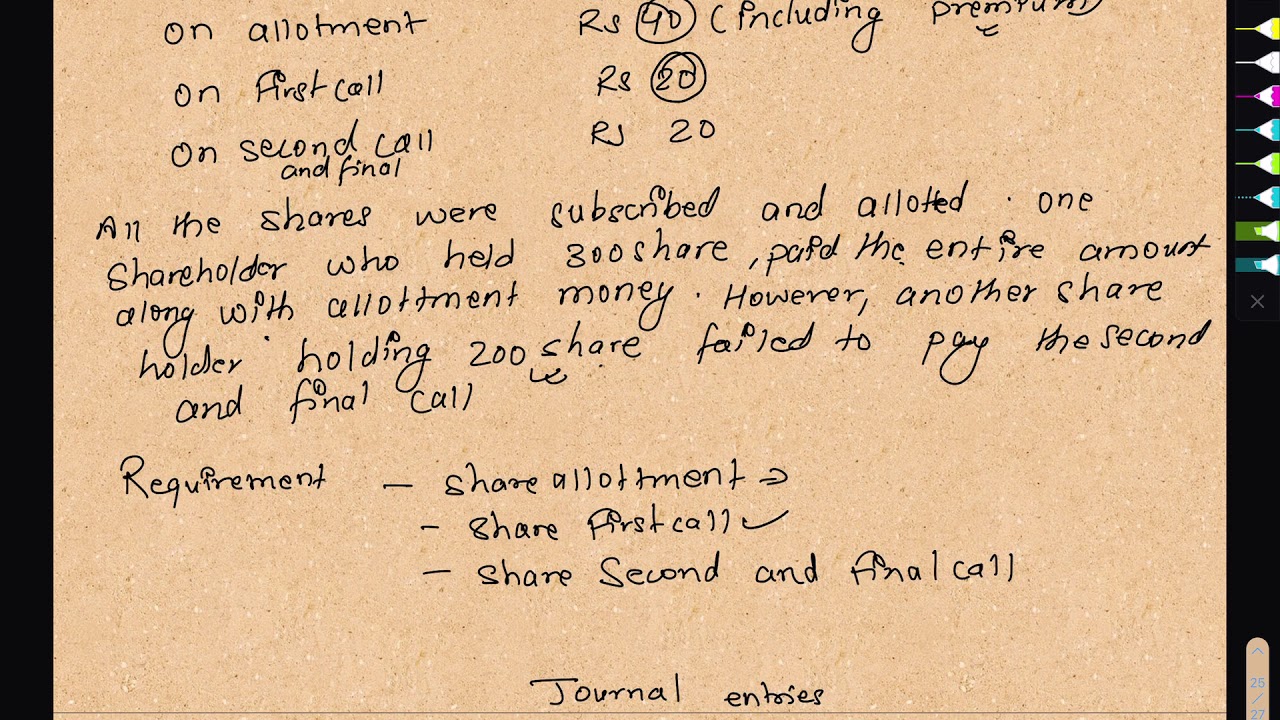 on allotment Rs 40 (including premium)
on first call Rs 20
on second call Rs 20
and final
All the shares were subscribed and allotted . one
shareholder who held 300 share , paid the entire amount
along with allottment money . However, another share
holder holding 200 share failed to pay the second
and final call
Requirement - share allottment ⇒
- share first call ✓
- share Second and final call
Journal entries
25
/
27